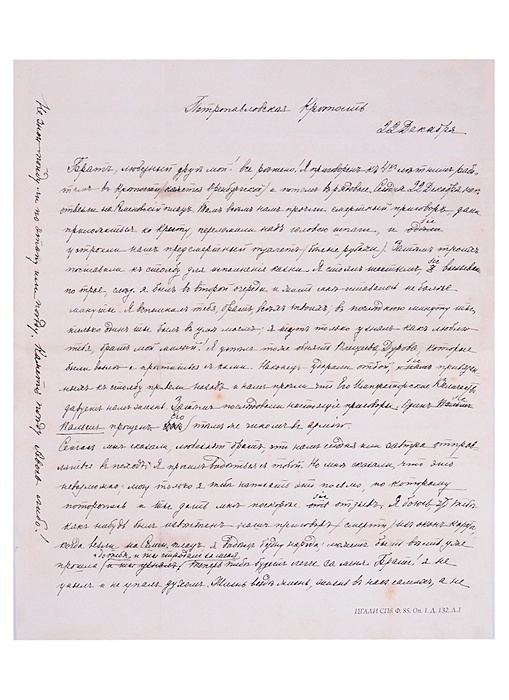 Петропавловская Крепость
22 Декабря
Братъ, любезный другъ мой! все рѣшено! Я приговоренъ къ 4-хъ лѣтнимъ рабо-
тамъ въ крѣпости (кажется Оренбургской) и потомъ въ рядовые. Сегодня 22 Декабря насъ
отвезли на Семеновскій плацъ. Тамъ всѣмъ намъ прочли смертный приговоръ, дали
приложиться къ кресту, переломили надъ головою шпаги и
устроили нашъ предсмертный туалетъ (бѣлые рубахи). Затѣмъ троихъ
поставили къ столбу для исполненія казни. Я стоялъ шестымъ, вызывали
по трое, слѣд. я былъ во второй очереди и жить мнѣ оставалось не болѣе
минуты. Я вспомнилъ тебя, братъ, всѣхъ твоихъ; въ послѣднюю минуту ты,
только одинъ ты, былъ въ умѣ моемъ, я тутъ только узналъ какъ люблю
тебя, братъ мой милый! Я успѣлъ тоже обнять Плещеева, Дурова, которые
были возлѣ и проститься съ ними. Наконецъ ударили отбой, привязан-
ныхъ къ столбу привели назадъ и намъ прочли что Его Императорское Величество
даруетъ намъ жизнь. Затѣмъ послѣдовали настоящіе приговоры. Одинъ
Пальмъ прощенъ. Его тѣмъ же чиномъ въ армію.
Сейчасъ мнѣ сказали, любезный братъ, что намъ сегодня или завтра отправ-
ляться въ походъ. Я просилъ видѣться съ тобой. Но мнѣ сказали, что это
невозможно; могу только я тебѣ написать это письмо, по которому
поторопись и ты дать мнѣ поскорѣе отзывъ. Я боюсь
какъ нибудь былъ извѣстенъ нашъ приговоръ (къ смерти). Изъ оконъ кареты,
когда везли на Семен. плацъ, я видѣлъ бездну народа; можетъ быть вѣсть уже
прошла и до тебя, и ты страдалъ за меня.
Теперь тебѣ будетъ легче за меня. Братъ! я не
унылъ и не упалъ духомъ. Жизнь вездѣ жизнь, жизнь въ насъ самихъ, а не
ЦГАЛИ СПб. Ф. 85. Оп. 1. Д. 132. Л.1
Не знаю пойду ли по этапу или поѣду. Кажется поѣду. Авось-либо!